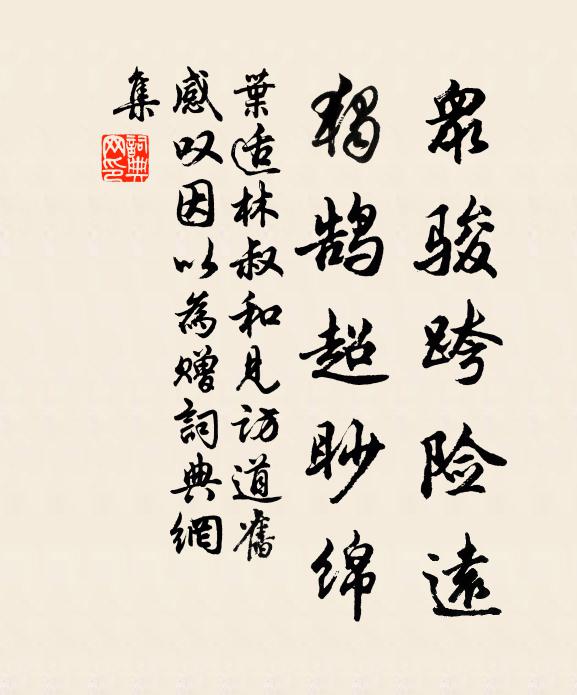 眾骏跨险遠
獨鹄超眇绵
葉适林叔和見访道舊
感叹因以為赠詞典網
集
詞典网印